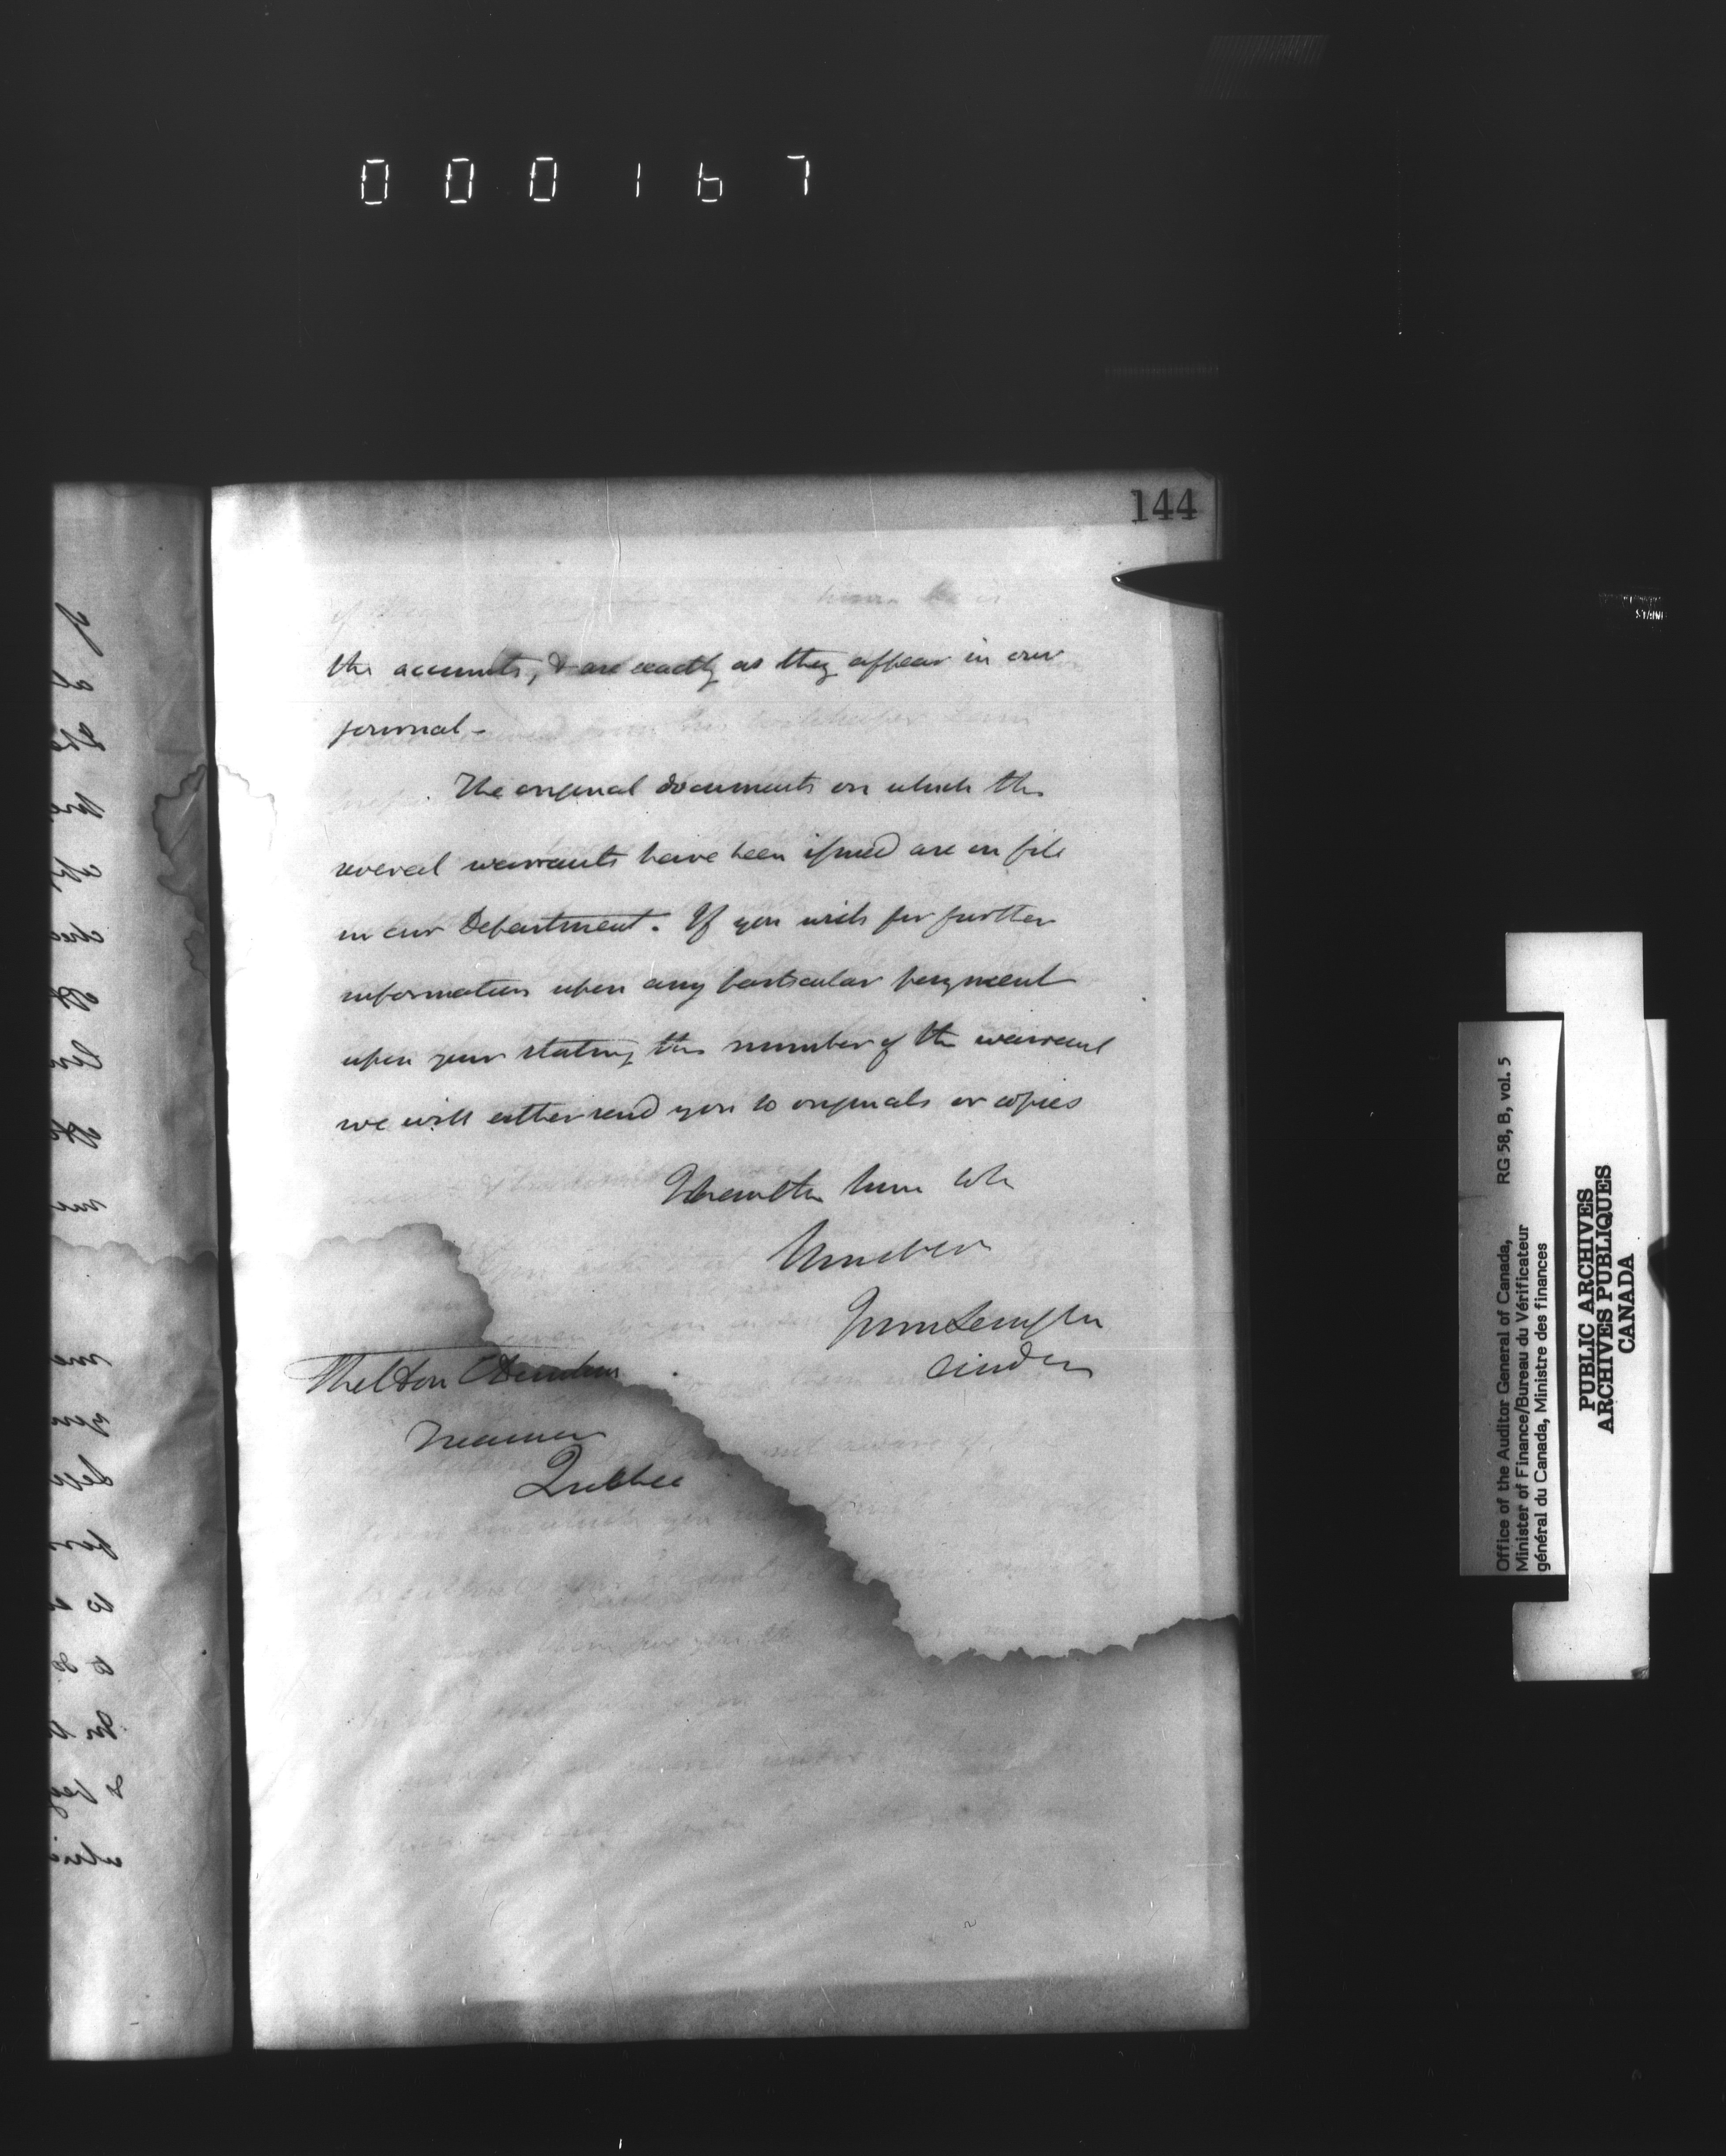 000167
144
the accounts, & are exactly as they appear in our
journal -
The original documents on which the
several warrants have been issued are on file
in our Department. If you wish for further
information upon any particular payment
upon your stating the number of the warrant
we will either send you to originals or copies
I have the honor to be
Your obed
John Langton
Auditor
The Hon
Treasurer
Quebec
Office of the Auditor General of Canada, RG 58, B, vol. 5
Minister of Finance/Bureau du Vérificateur
général du Canada, Ministre des finances
PUBLIC ARCHIVES
ARCHIVES PUBLIQUES
CANADA